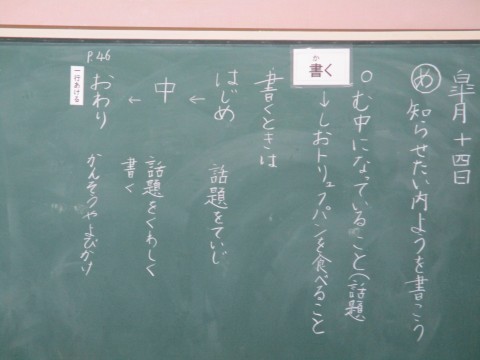 皐月十四日
め 知らせたい内ようを書こう
○む中になっていること(話題
↓しおトリュフパンを食べること
か
書く
書くときは
はじめ 話題をていじ
↓
中 話題をくわしく
書く
↓
おわり かんそうやよびかけ
P.46
一行あける